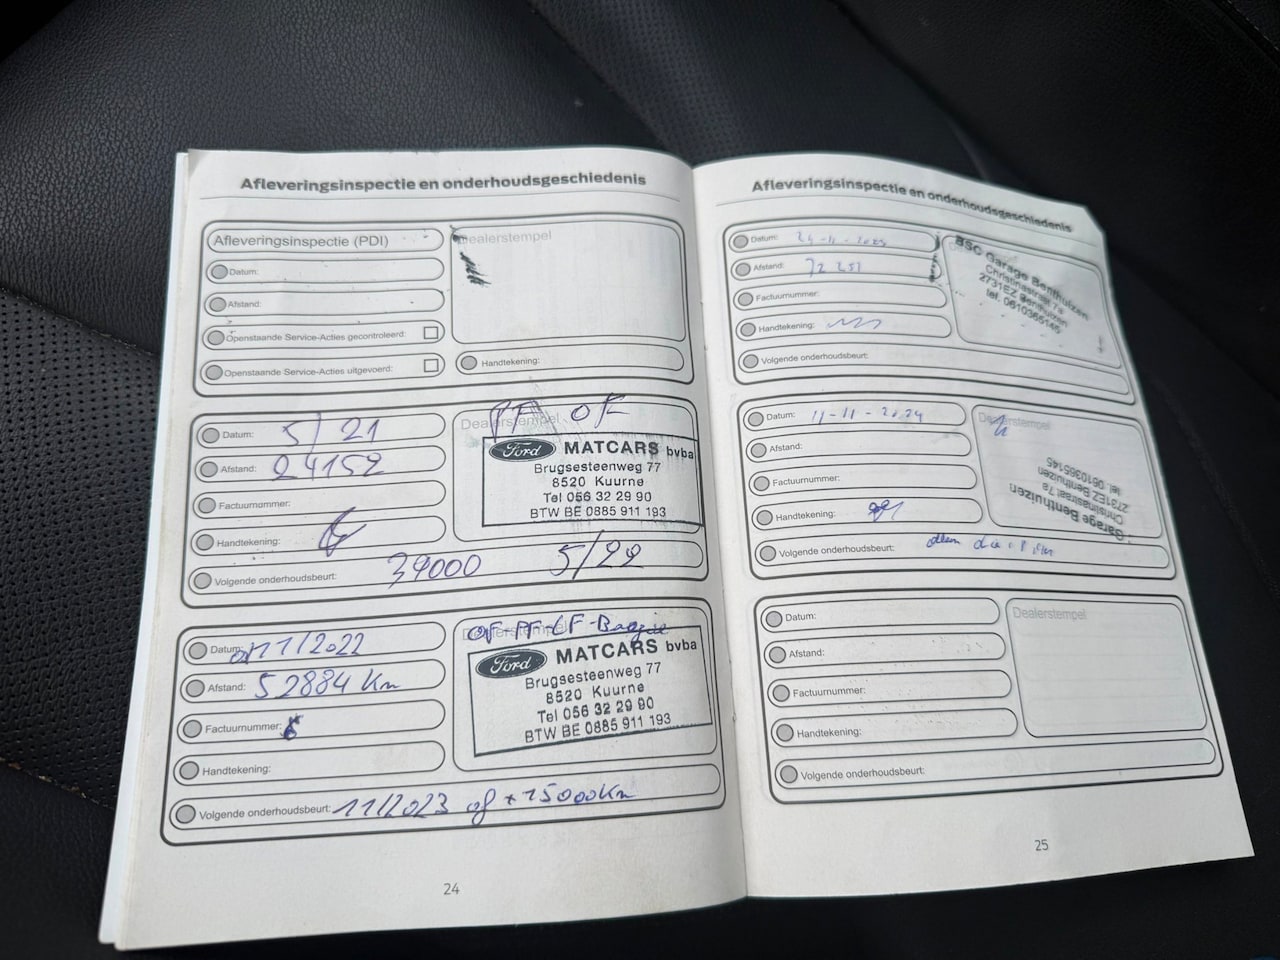 Afleveringsinspectie en onderhoudsgeschiedenis
Afleveringsinspectie (PDI)
Datum:
Afstand:
Openstaande Service-Acties gecontroleerd:
Openstaande Service-Acties uitgevoerd:
Dealerstempel
Handtekening:
Datum: 5/21
Afstand: 24152
Factuurnummer:
Handtekening:
Volgende onderhoudsbeurt: 34000 5/22
PF OF
Dealerstempel
Ford MATCARS bvba
Brugsesteenweg 77
8520 Kuurne
Tel 056 32 29 90
BTW BE 0885 911 193
Datum: 11/2022
Afstand: 52884 Km
Factuurnummer:
Handtekening:
Volgende onderhoudsbeurt: 11/2023 of + 15000Km
OF-PF-LF-
Dealerstempel
Ford MATCARS bvba
Brugsesteenweg 77
8520 Kuurne
Tel 056 32 29 90
BTW BE 0885 911 193
24
Afleveringsinspectie en onderhoudsgeschiedenis
Datum:
Afstand: 72 251
Factuurnummer:
Handtekening:
Volgende onderhoudsbeurt:
BSC Garage Benthuizen
Christinastraat 7a
2731EZ Benthuizen
tel. 0610365145
Datum: 11-11-2024
Afstand:
Factuurnummer:
Handtekening:
Volgende onderhoudsbeurt:
Dealerstempel
Garage Benthuizen
Christinastraat 7a
2731EZ Benthuizen
tel. 0610365145
Datum:
Afstand:
Factuurnummer:
Handtekening:
Volgende onderhoudsbeurt:
Dealerstempel
25